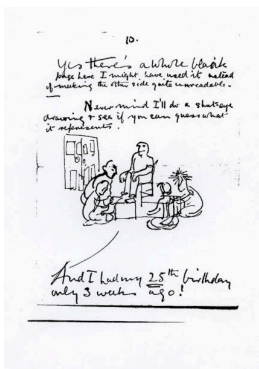 10.
Yes there's a whole blank
page here I might have used it instead
of making the other side quite unreadable.
Never mind I'll do a shut-eye
drawing & see if you can guess what
it represents.
And I had my 25th birthday
only 3 weeks ago!